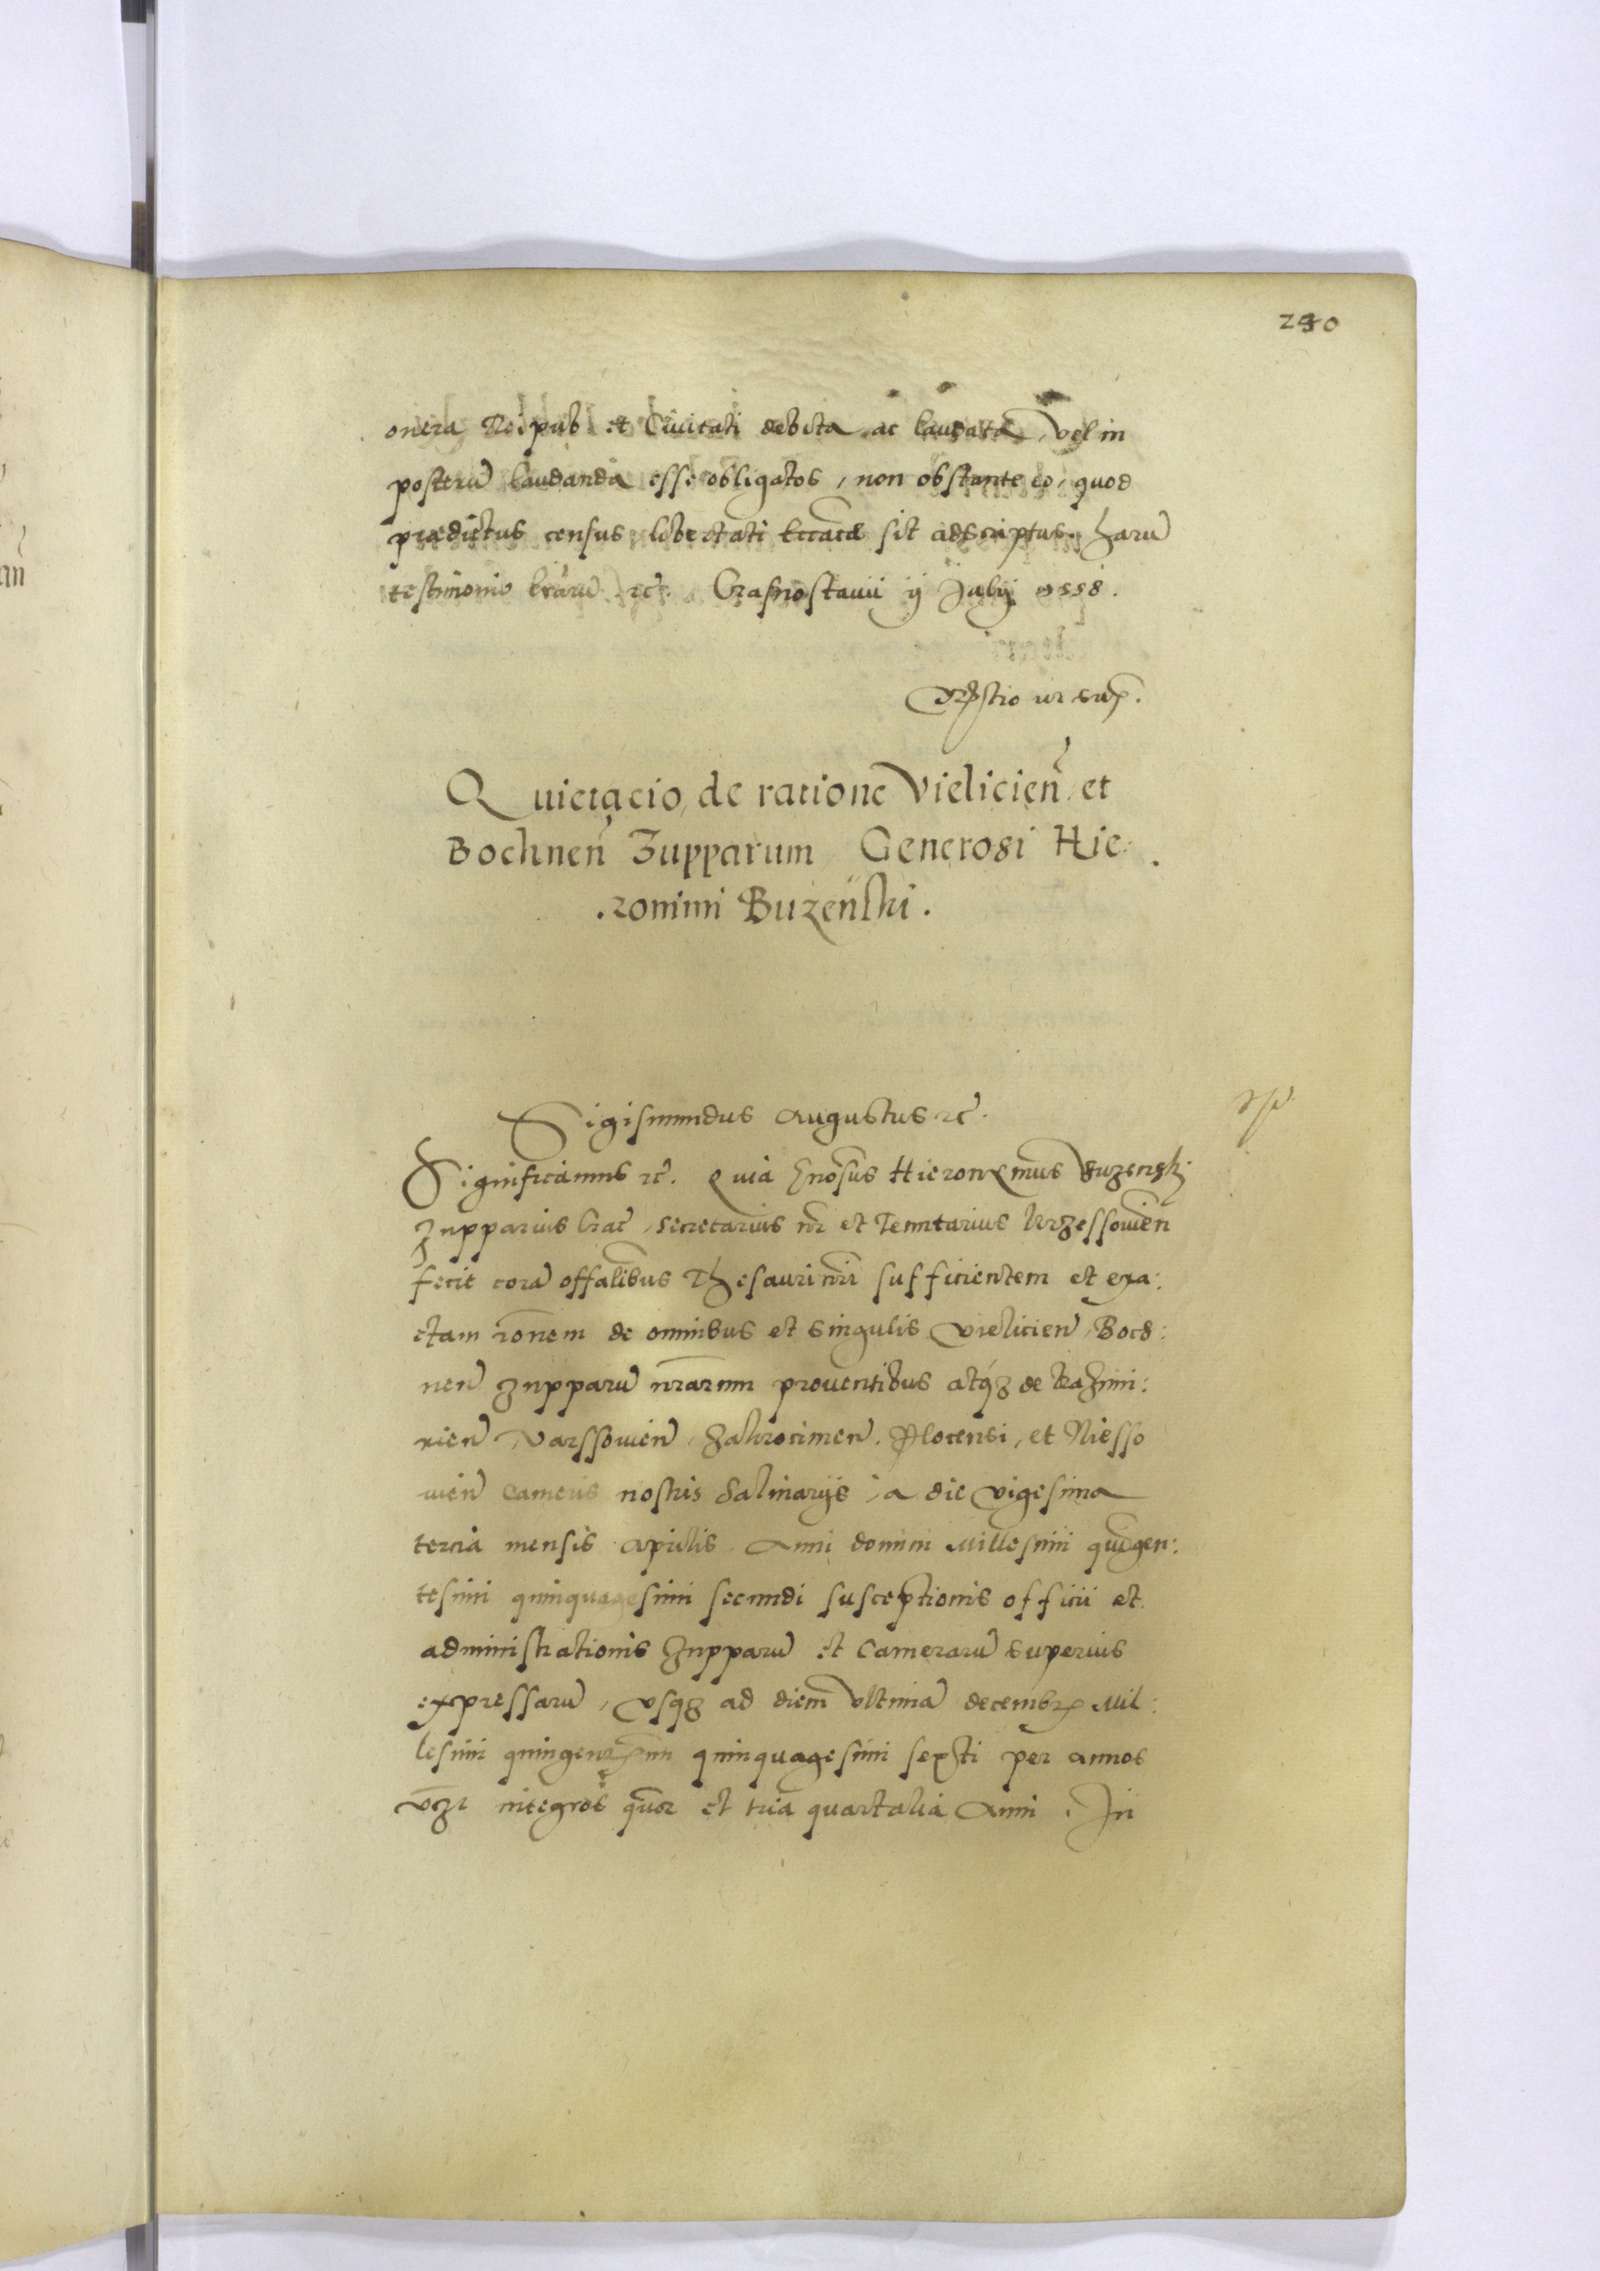 240
onera Reipub et Civitati debita ac laudata, vel in
posterũ laudanda esse obligatos, non obstante eo, quod
prædictus census libertati Ecc̃ae sit adscriptus. Harũ
testimonio lr̃arũ etc̃. Crasnostavii ij Julij 1558.
ut sup̃.
Quietacio de ratione Vielicieñ et
Bochneñ Zupparum Generosi Hie:
ronimi Buzenski.
Sigismundus Augustus etc̃.
Significamus etc̃. Quia Gñosus Hieronymus Buzensky
Zupparius Crac̃, secretarius nr̃ et Tenutarius Brzessovieñ
fecit corã offalibus Thesauri nr̃i sufficientem et exa:
ctam rõnem de omnibus et singulis Vielicieñ, Boch:
neñ Zupparũ nr̃arum proventibus atqꝫ de Kazimi:
rieñ, Varssovieñ, Zakrocimeñ, Plocensi, et Niesso
vieñ Cameris nostris Salinarijs, a die vigesima
tercia mensis Aprilis Anni domini Millesimi quingen:
tesimi quinquagesimi secundi susceptionis officii et
administrationis Zupparũ et Camerarũ superius
expressarũ, usqꝫ ad diem ultimã decembr̃ Mil:
lesimi quingentesimi quinquagesimi sexti per annos
vꝫ integros quor et tria quartalia Anni. In